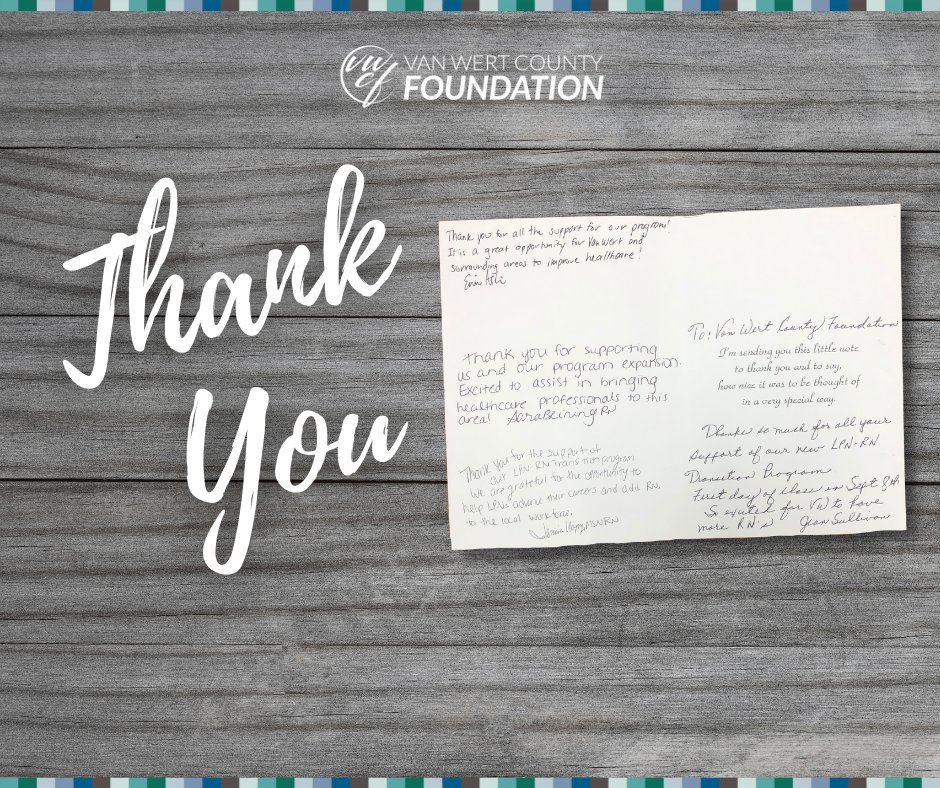 vwcf
VAN WERT COUNTY
FOUNDATION
Thank
You
Thank you for all the support for our program!
It is a great opportunity for Van Wert and
surrounding areas to improve healthcare!
Erin
Thank you for supporting
us and our program expansion.
Excited to assist in bringing
healthcare professionals to this
area! Sara RN
Thank you for the support of
our LPN-RN Transition program
We are grateful for the opportunity to
help LPNs advance their careers and add RNs
to the local workforce.
MSN RN
To: Van Wert County Foundation
I'm sending you this little note
to thank you and to say,
how nice it was to be thought of
in a very special way.
Thanks so much for all your
support of our new LPN-RN
Transition Program
First day of class in Sept 8th
So excited for VW to have
more RN's Jean Sullivan